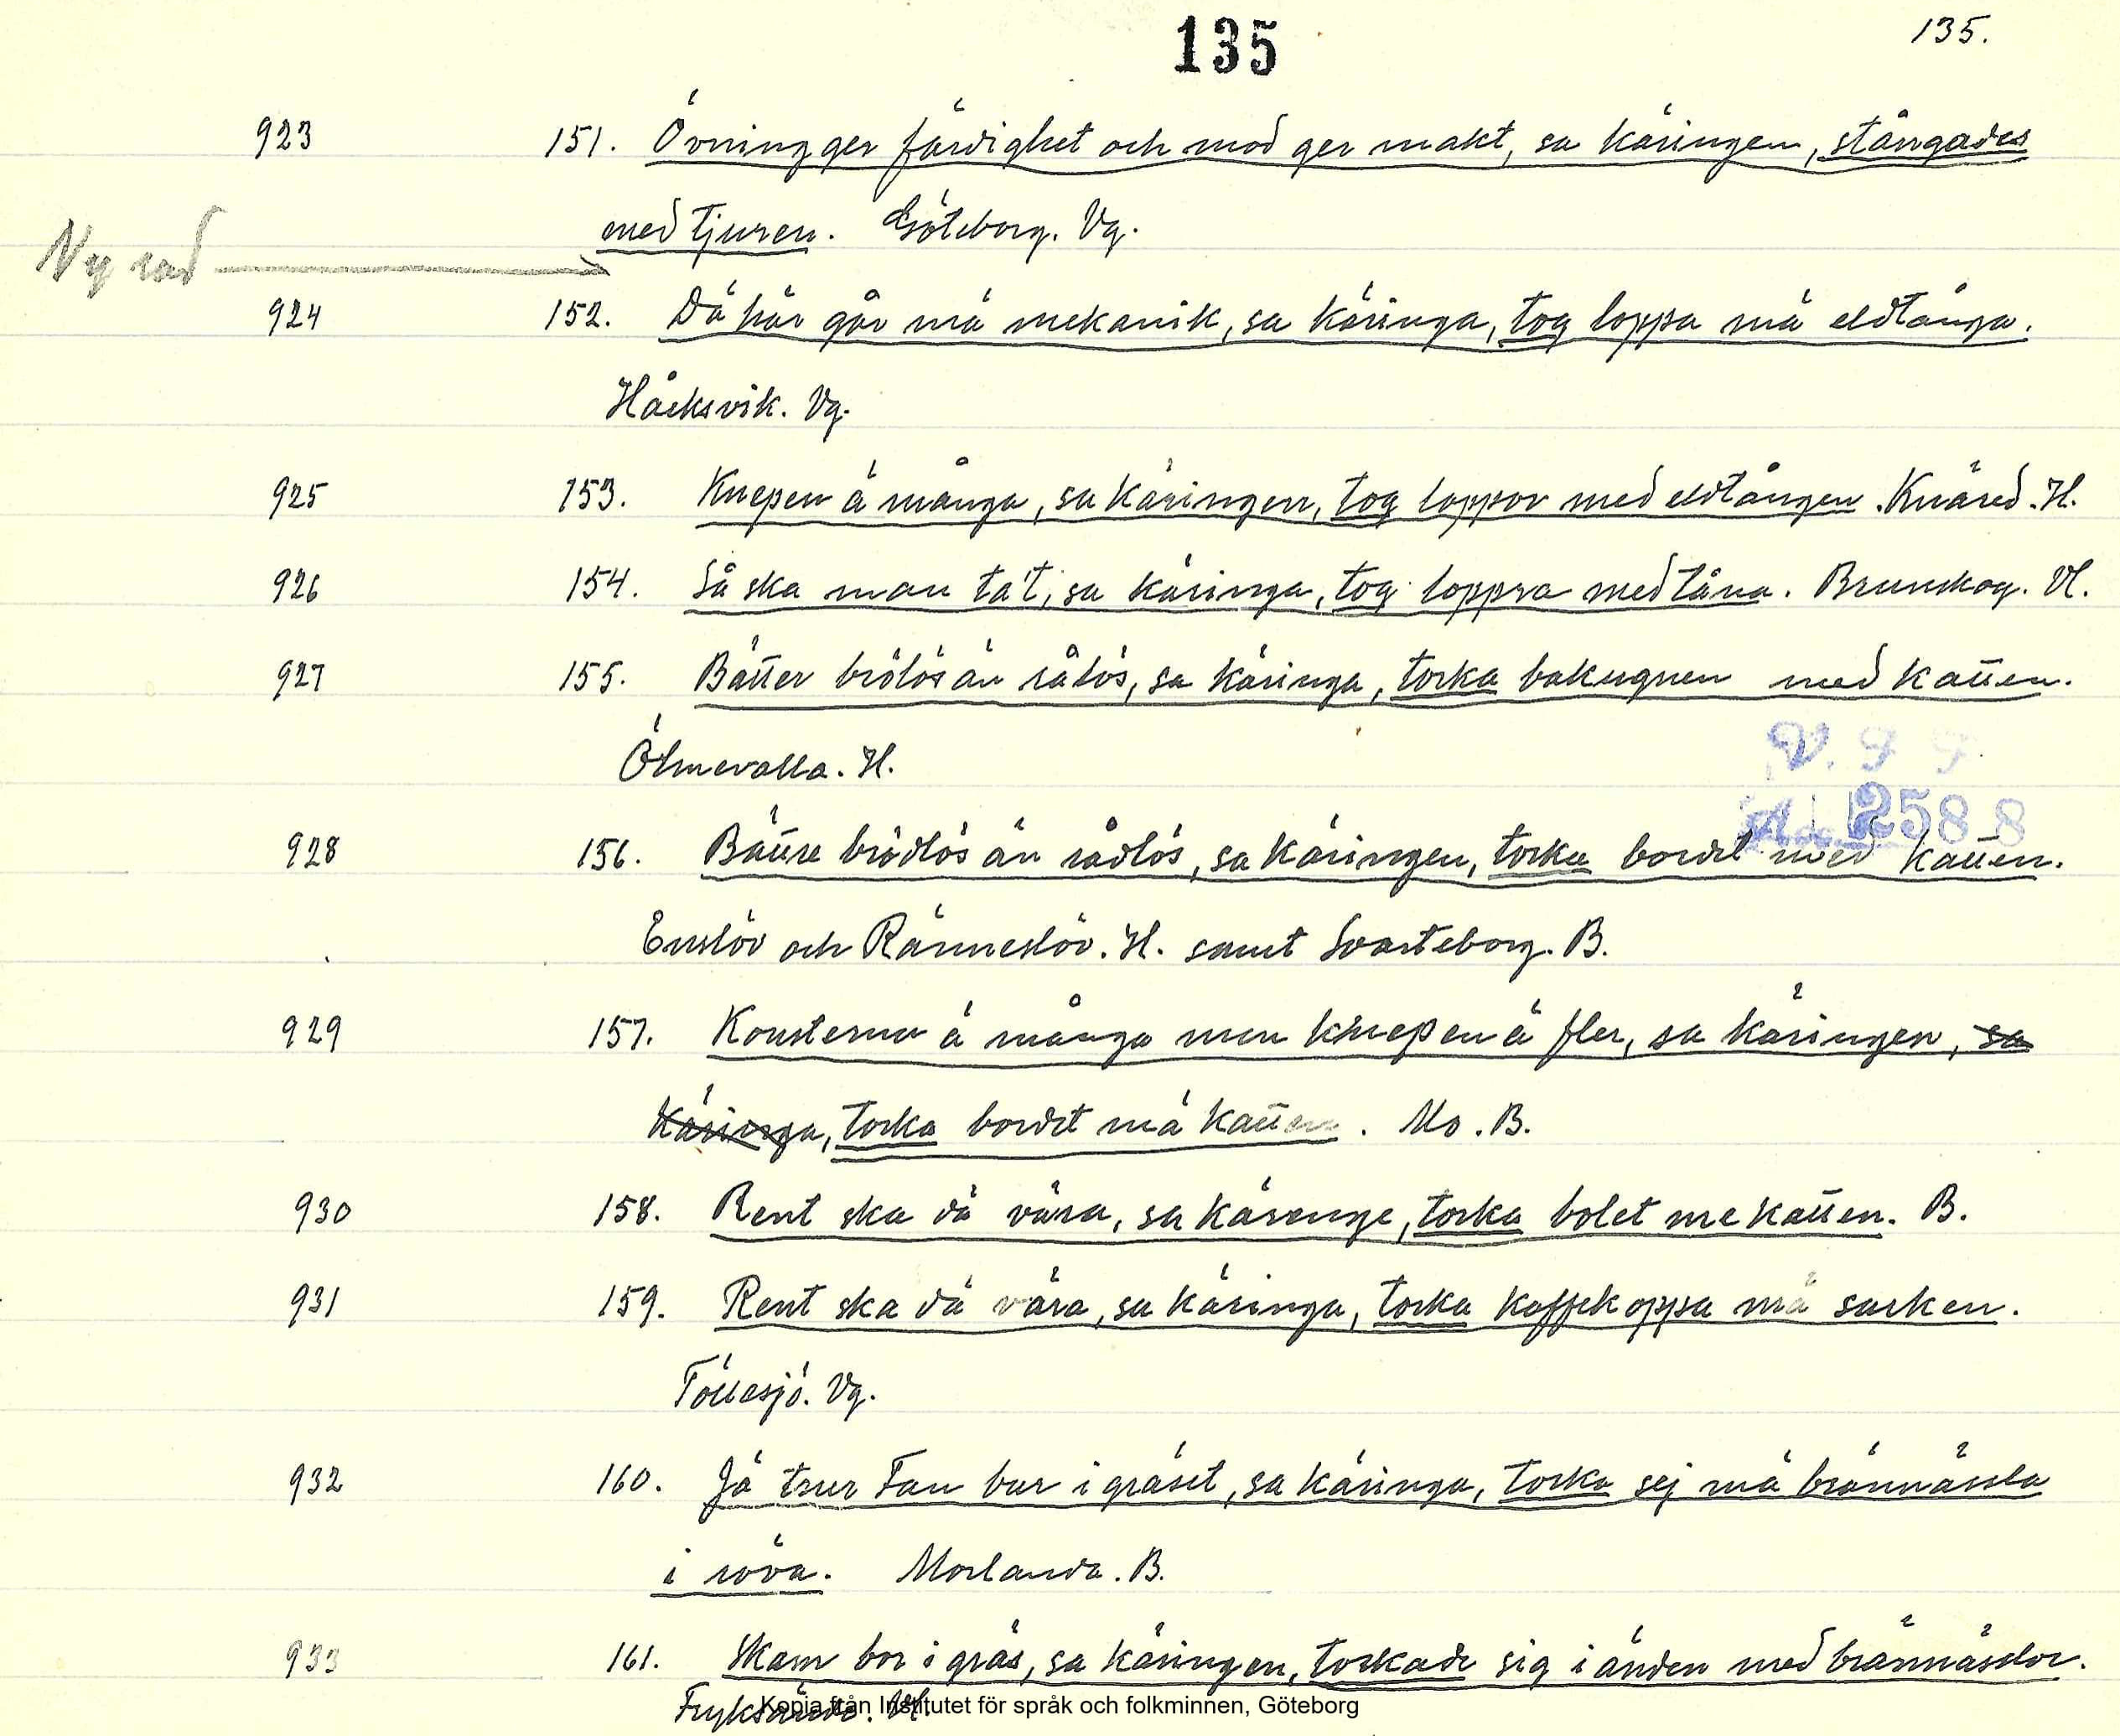 135
135.
923 151. Övning ger färdighet och mod ger makt, sa käringen, stångades
med tjuren. Göteborg. Vg.
Ny rad
924 152. Dä här går mä mekanik, sa käringa, tog loppa mä eldtånga.
Håcksvik. Vg.
925 153. Knepen ä många, sa käringen, tog loppor med eldtången. Knäred. H.
926 154. Så ska man ta't, sa käringa, tog loppra med tåna. Brunskog. Vl.
927 155. Bätter brölös än rålös, sa käringa, torka bakugnen med katten.
Ölmevalla. H.
V. F F
A 2588
928 156. Bättre brödlös än rådlös, sa käringen, torka bordet med katten.
Enslöv och Ränneslöv. H. samt Svarteborg. B.
929 157. Konsterna ä många men knepen ä fler, sa käringen, sa
käringa, torka bordet mä katten. Mo. B.
930 158. Rent ska dä våra, sa kärenge, torka bolet me katten. B.
931 159. Rent ska dä våra, sa käringa, torka kaffekoppa mä sarken.
Töllesjö. Vg.
932 160. Jä trur Fan bur i gräset, sa käringa, torka sej mä brännässla
i röva. Morlanda. B.
933 161. Skam bor i gräs, sa käringen, torkade sig i änden med brännässlor.
Fryksände. Vl.
Kopia från Institutet för språk och folkminnen, Göteborg